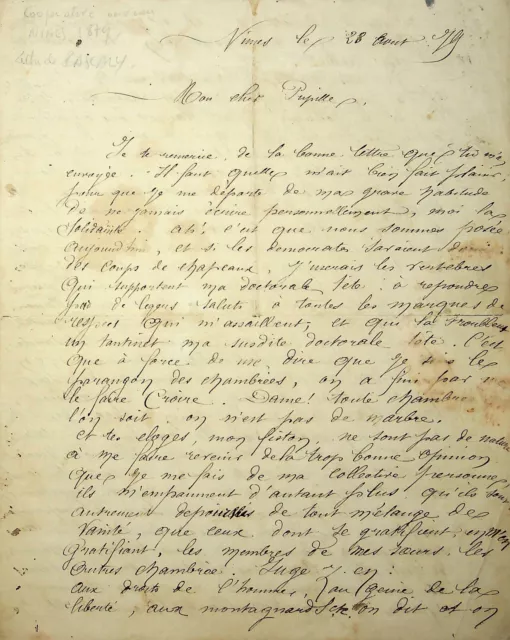 Nimes le 28 Aout 79
Mon cher Pupille,
Je te remercie de la bonne lettre que tu m'as
envoyée. Il faut qu'elle m'ait bien fait plaisir,
pour que je me departe de ma grave habitude
de ne jamais écrire personnellement, moi la
Solidarité. Ah! c'est que nous sommes posée
aujourd'hui, et si les democrates savaient
des coups de chapeaux, j'aurais les vertebres
qui supportent ma doctorale tête à repondre
par de legers saluts à toutes les marques de
respect qui m'assaillent, et qui la troublent
un tantinet ma susdite doctorale tête. C'est
que à force de me dire que je suis le
parangon des chambrées, on a fini par me
le faire Croire. Dame! toute chambrée
l'on soit on n'est pas de marbre.
et tes eloges, mon fiston, ne sont pas de nature
à me faire revenir de la trop bonne opinion
que je me fais de ma collective personne,
ils m'empaument d'autant plus, qu'ils sont
autrement depourvus de tout mélange de
Vanité, que ceux dont se gratifient,
gratifiant, les membres de mes sœurs les
autres chambrées. Juge z en:
aux droits de l'homme, au genie de la
liberté, aux montagnards etc on dit et on